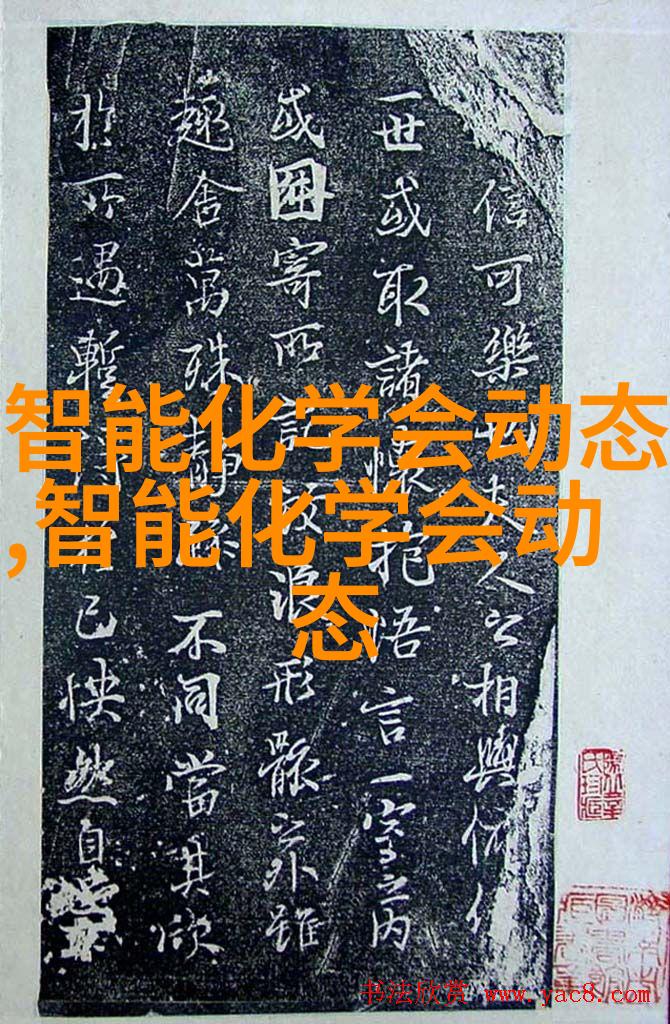 信可樂也夫人之相與俯仰
一世或取諸懷抱悟言一室之内
或因寄所託放浪形骸之外雖
趣舍萬殊靜躁不同當其欣
於所遇暫得於己快然自
智能化学会动态
,智能化学会动
态
书法欣赏 www.yac8.com